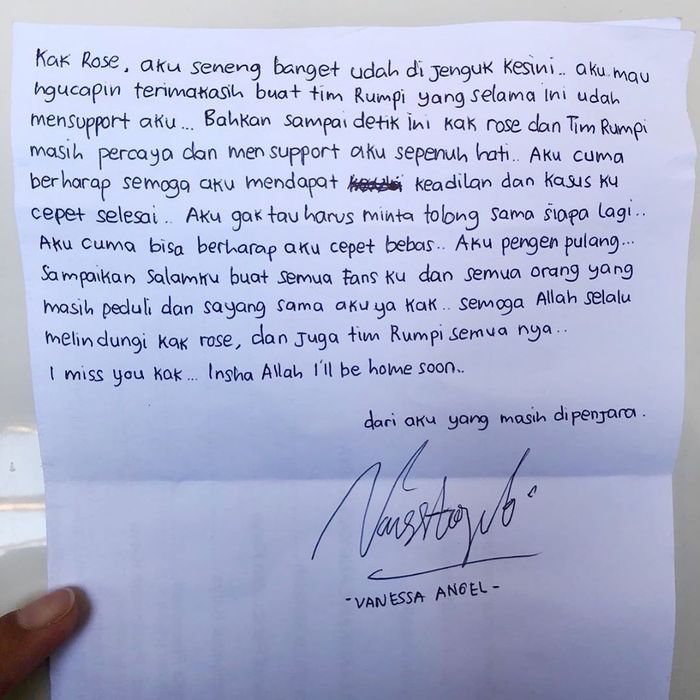 Kak Rose, aku seneng banget udah di jenguk kesini.. aku mau
ngucapin terimakasih buat tim Rumpi yang selama ini udah
mensupport aku... Bahkan sampai detik ini kak rose dan Tim Rumpi
masih percaya dan mensupport aku sepenuh hati.. Aku cuma
berharap semoga aku mendapat keadilan dan kasus ku
cepet selesai.. Aku gak tau harus minta tolong sama siapa lagi..
Aku cuma bisa berharap aku cepet bebas.. Aku pengen pulang...
Sampaikan salamku buat semua fans ku dan semua orang yang
masih peduli dan sayang sama aku ya kak.. semoga Allah selalu
melindungi kak rose, dan juga tim Rumpi semua nya..
I miss you kak... Insha Allah I'll be home soon..
dari aku yang masih dipenjara.
-VANESSA ANGEL-